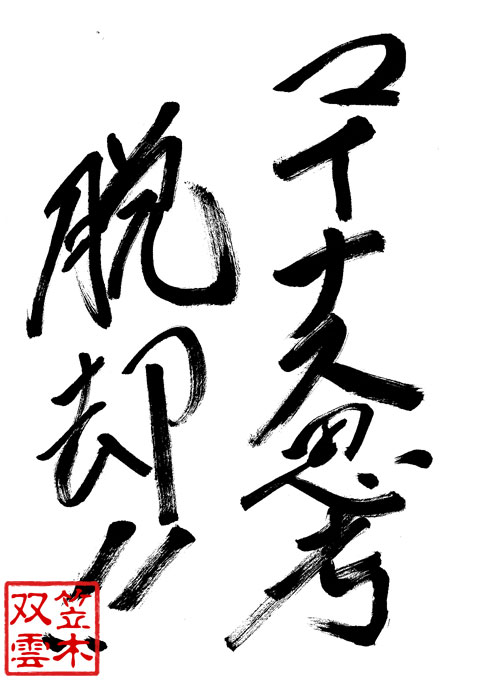 マイナス思考
脱却!!
笠木
双雲